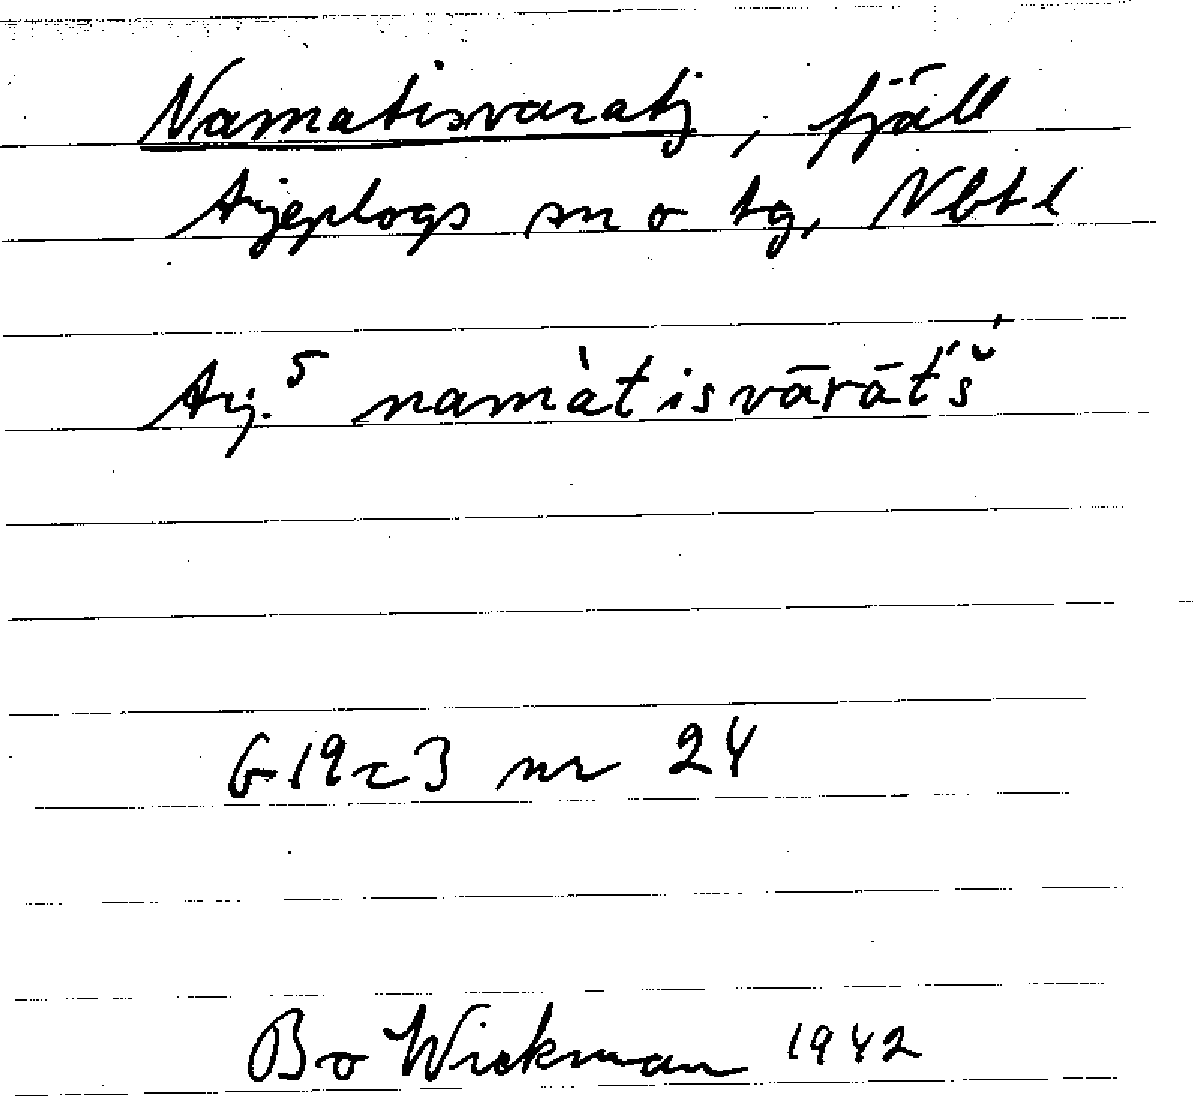 Namatisvaratj, fjäll
Arjeplogs sn o tg, Nbtl
Arj.⁵ namàtisvārāt́š́
G19c3 nr 24
Bo Wickman 1942